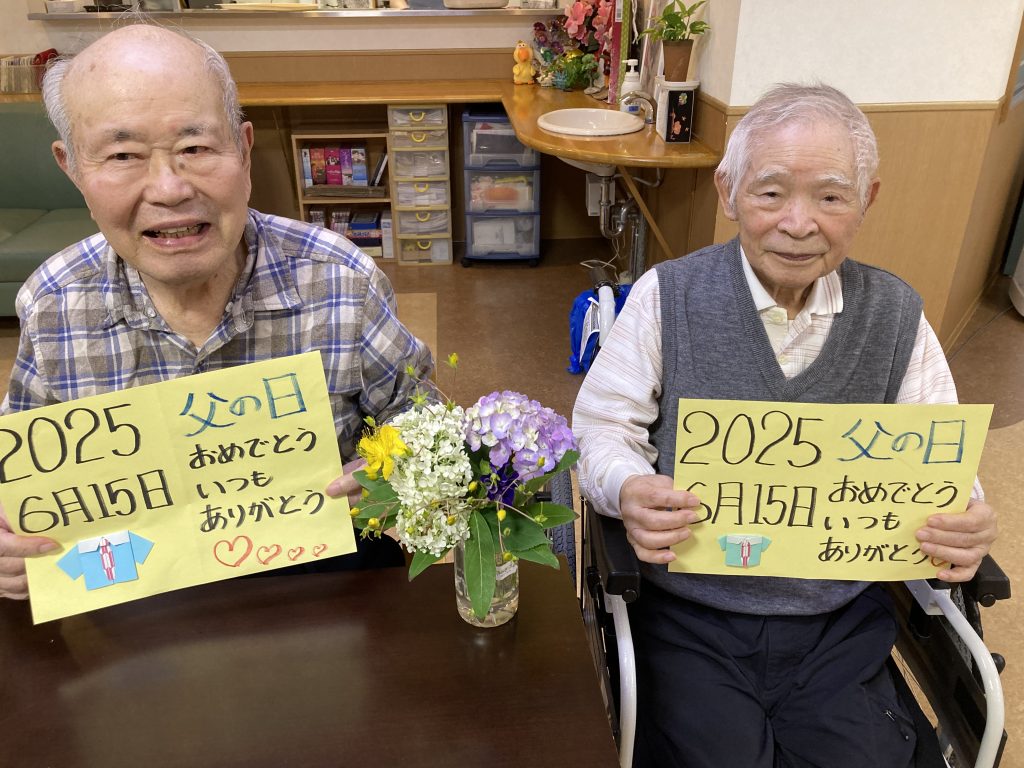 2025 父の日
6月15日 おめでとう
いつも
ありがとう
2025 父の日
6月15日 おめでとう
いつも
ありがとう